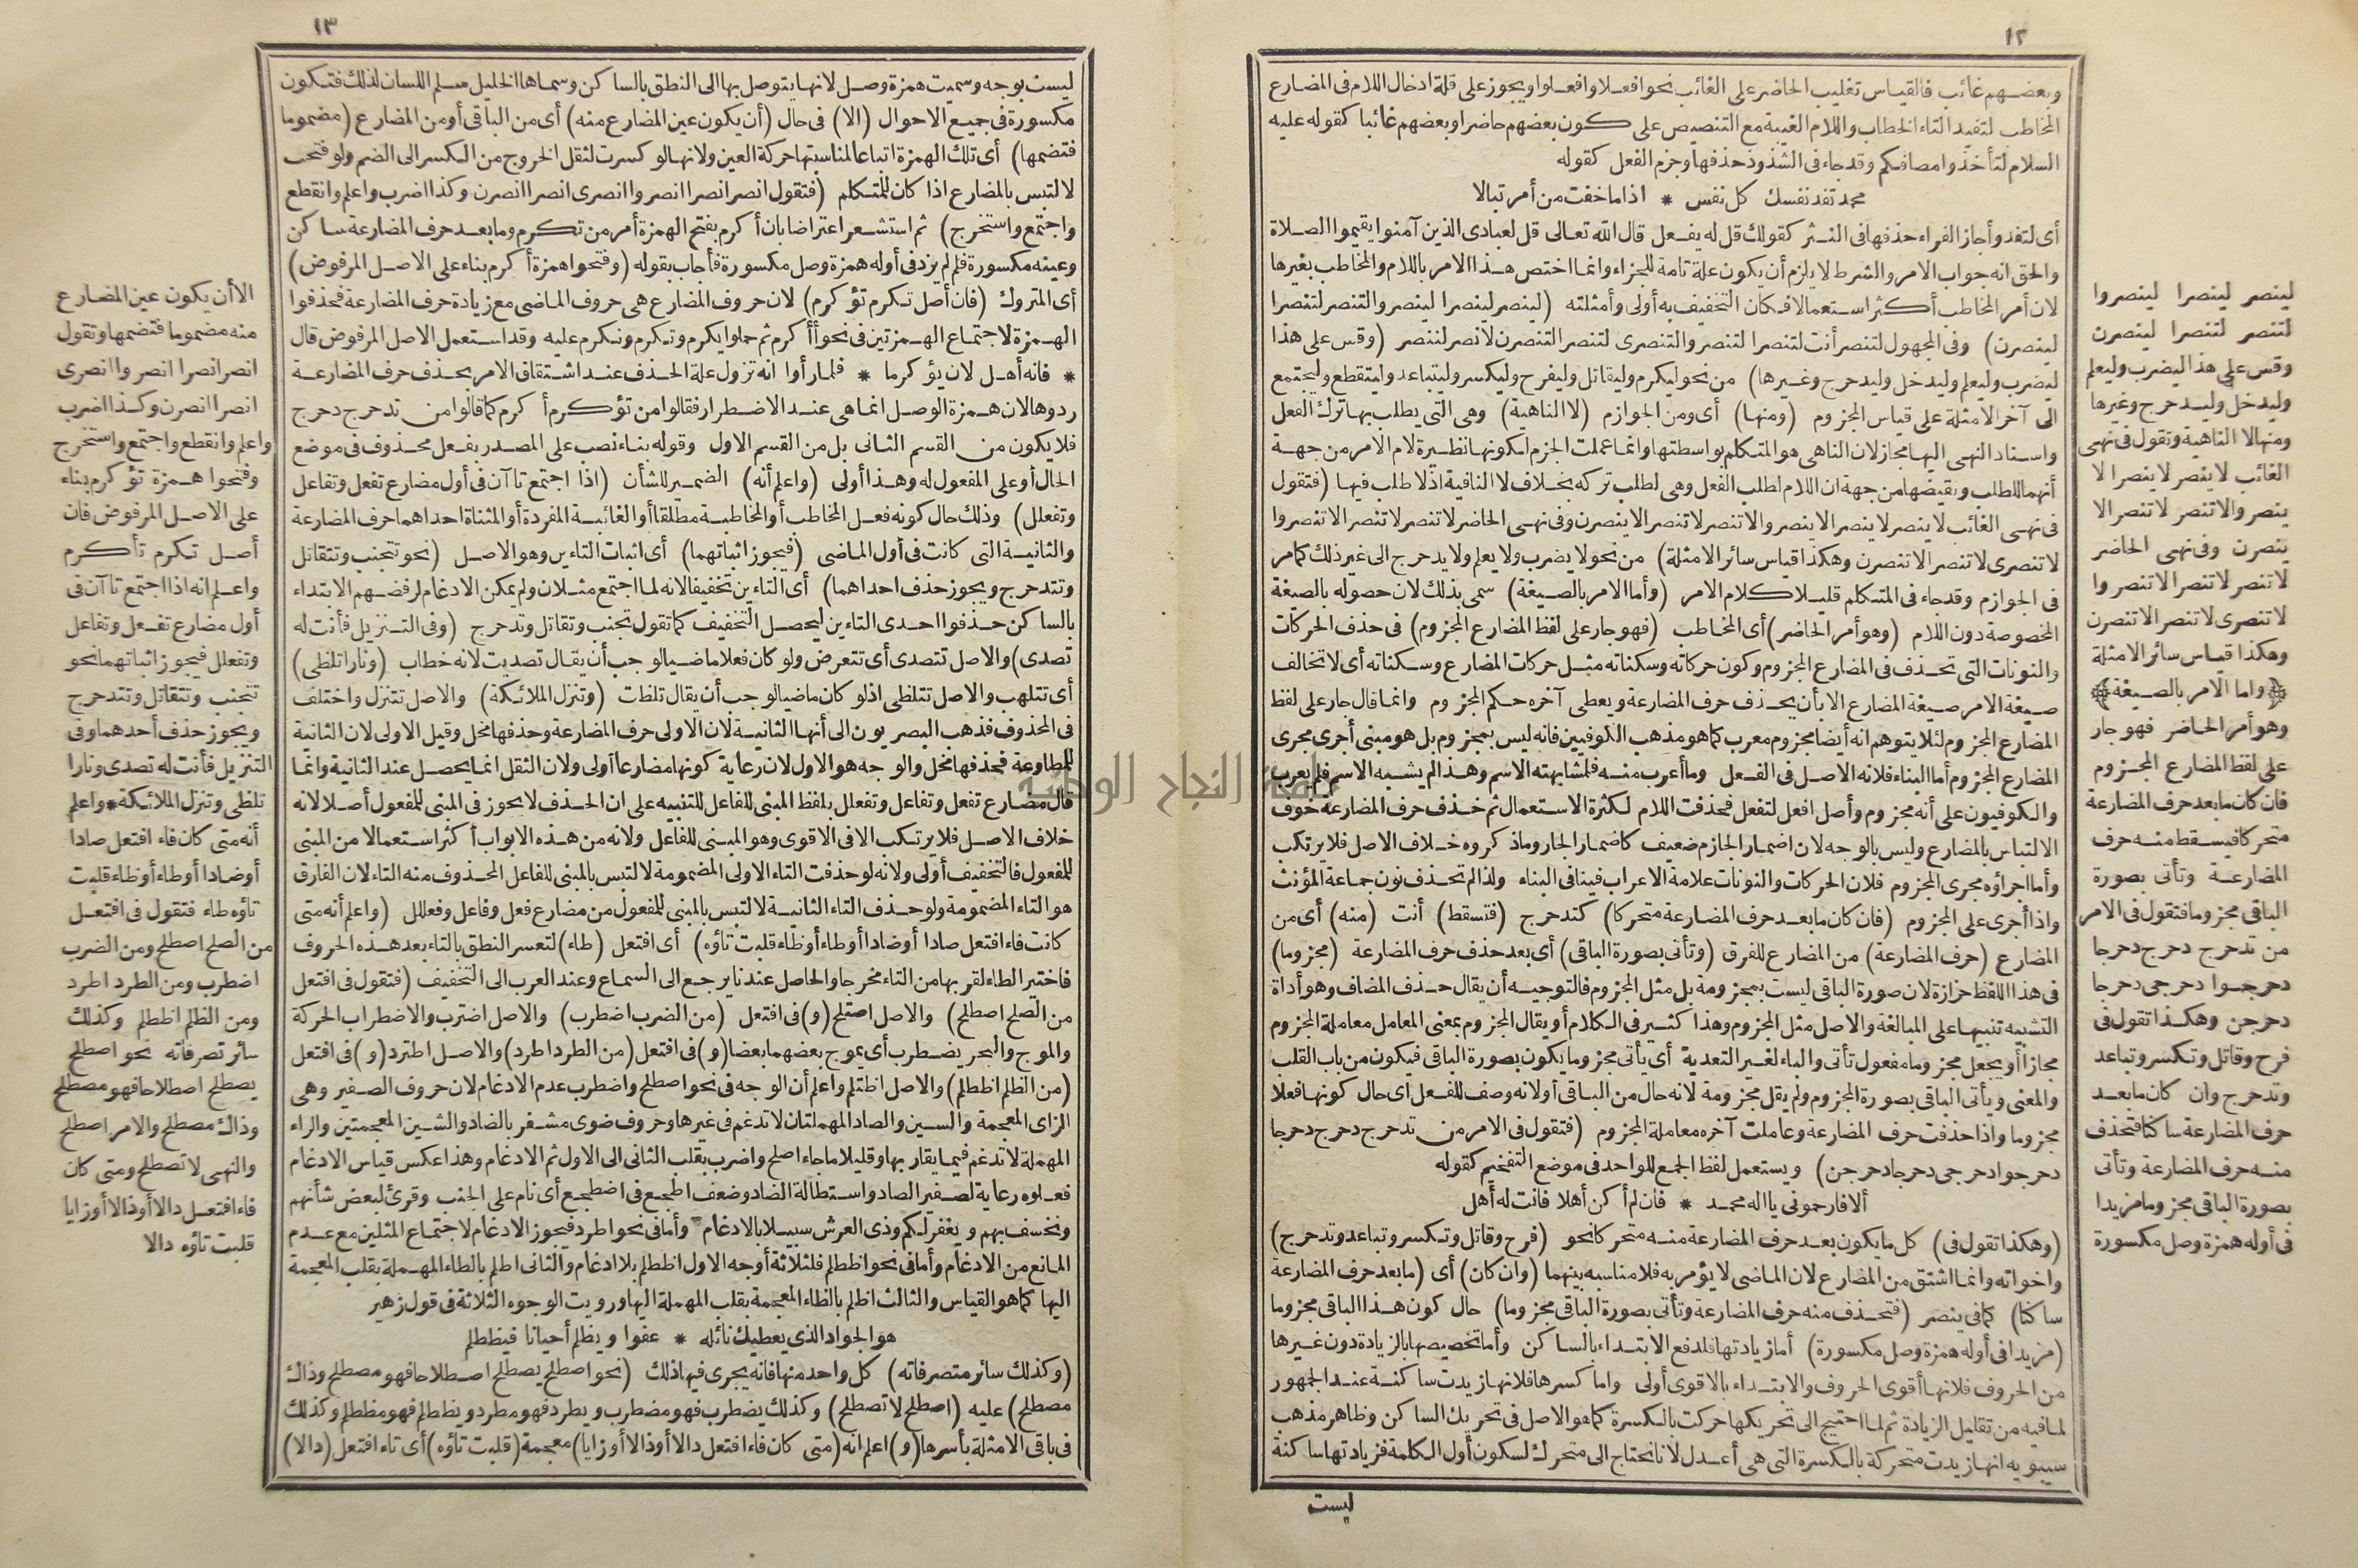 ١٢
وبعضهم غائب فالقياس تغليب الحاضر على الغائب نحو افعلا وافعلوا ويجوز على قلة ادخال اللام فى المضارع
المخاطب لتفيد التاء الخطاب واللام الغيبة مع التنصيص على كون بعضهم حاضرا وبعضهم غائبا كقوله عليه
السلام لتأخذوا مصافكم وقد جاء فى الشذوذ حذفها وجزم الفعل كقوله
محمد تفد نفسك كل نفس * اذا ما خفت من أمر تبالا
أى لتفد وأجاز الفراء حذفها فى النثر كقولك قل له يفعل قال الله تعالى قل لعبادى الذين آمنوا يقيموا الصلاة
والحق انه جواب الامر والشرط لا يلزم أن يكون علة تامة للجزاء وانما اختص هذا الامر باللام والمخاطب بغيرها
لان أمر المخاطب أكثر استعمالا فكان التخفيف به أولى وأمثلته (لينصر لينصرا لينصروا لتنصر لتنصرا
لينصرن) وفى المجهول لتنصر أنت لتنصرا لتنصروا لتنصرى لتنصرا لتنصرن لانصر لننصر (وقس على هذا
ليضرب وليعلم وليدخل وليدحرج وغيرها) من نحو ليكرم وليقاتل وليفرح وليكسر وليتباعد وليتقطع وليجتمع
الى آخر الامثلة على قياس المجزوم (ومنها) أى ومن الجوازم (لا الناهية) وهى التى يطلب بها ترك الفعل
واسناد النهى اليها مجاز لان الناهى هو المتكلم بواسطتها وانما عملت الجزم لكونها نظيرة لام الامر من جهة
أنهما للطلب ونقيضها من جهة ان اللام لطلب الفعل وهى لطلب تركه بخلاف لا النافية اذ لا طلب فيها (فتقول
فى نهى الغائب لا ينصر لا ينصرا لا ينصروا لا تنصر لا تنصرا لا ينصرن وفى نهى الحاضر لا تنصر لا تنصرا لا تنصروا
لا تنصرى لا تنصرا لا تنصرن وهكذا قياس سائر الامثلة) من نحو لا يضرب ولا يعلم ولا يدحرج الى غير ذلك كما مر
فى الجوازم وقد جاء فى المتكلم قليلا كلام الامر (وأما الامر بالصيغة) سمى بذلك لان حصوله بالصيغة
المخصوصة دون اللام (وهو أمر الحاضر) أى المخاطب (فهو جار على لفظ المضارع المجزوم) فى حذف الحركات
والنونات التى تحذف فى المضارع المجزوم وكون حركاته وسكناته مثل حركات المضارع وسكناته أى لا تخالف
صيغة الامر صيغة المضارع الا بأن يحذف حرف المضارعة ويعطى آخره حكم المجزوم وانما قال جار على لفظ
المضارع المجزوم لئلا يتوهم انه أيضا مجزوم معرب كما هو مذهب الكوفيين فانه ليس بمجزوم بل هو مبنى أجرى مجرى
المضارع المجزوم أما البناء فلانه الاصل فى الفعل وما أعرب منه فلمشابهته الاسم وهذا لم يشبه الاسم فلم يعرب
والكوفيون على أنه مجزوم وأصل افعل لتفعل فحذفت اللام لكثرة الاستعمال ثم حذف حرف المضارعة خوف
الالتباس بالمضارع وليس بالوجه لان اضمار الجازم ضعيف كاضمار الجار وما ذكروه خلاف الاصل فلا يرتكب
وأما اجراؤه مجرى المجزوم فلان الحركات والنونات علامة الاعراب فينافى البناء ولذا لم تحذف نون جماعة المؤنث
واذا أجرى على المجزوم (فان كان ما بعد حرف المضارعة متحركا) كتدحرج (فتسقط) أنت (منه) أى من
المضارع (حرف المضارعة) من المضارع للفرق (وتأتى بصورة الباقى) أى بعد حذف حرف المضارعة (مجزوما)
فى هذا اللفظ حزازة لان صورة الباقى ليست بمجزومة بل مثل المجزوم فالتوجيه أن يقال حذف المضاف وهو أداة
التشبيه تنبيها على المبالغة والاصل مثل المجزوم وهذا كثير فى الكلام أو يقال المجزوم بمعنى المعامل معاملة المجزوم
مجازا أو يجعل مجزوما مفعول تأتى والباء لغير التعدية أى يأتى مجزوما يكون بصورة الباقى فيكون من باب القلب
والمعنى ويأتى الباقى بصورة المجزوم ولم يقل مجزومة لانه حال من الباقى أو لانه وصف للفعل اى حال كونها فعلا
مجزوما واذا حذفت حرف المضارعة وعاملت آخره معاملة المجزوم (فتقول فى الامر من تدحرج دحرج دحرجا
دحرجوا دحرجى دحرجا دحرجن) ويستعمل لفظ الجمع للواحد فى موضع التفخيم كقوله
ألا فارحمونى يا اله محمد * فان لم أكن أهلا فانت له أهل
(وهكذا تقول فى) كل ما يكون بعد حرف المضارعة منه متحركا نحو (فرح وقاتل وتكسر وتباعد وتدحرج)
واخواته وانما اشتق من المضارع لان الماضى لا يؤمر به فلا مناسبة بينهما (وان كان) أى (ما بعد حرف المضارعة
ساكنا) كما فى ينصر (فتحذف منه حرف المضارعة وتأتى بصورة الباقى مجزوما) حال كون هذا الباقى مجزوما
(مزيدا فى أوله همزة وصل مكسورة) أما زيادتها فلدفع الابتداء بالساكن وأما تخصيصها بالزيادة دون غيرها
من الحروف فلانها أقوى الحروف والابتداء بالاقوى أولى واما كسرها فلانها زيدت ساكنة عند الجمهور
لما فيه من تقليل الزيادة ثم لما احتيج الى تحريكها حركت بالكسرة كما هو الاصل فى تحريك الساكن وظاهر مذهب
سيبويه انها زيدت متحركة بالكسرة التى هى أعدل لانا نحتاج الى متحرك لسكون أول الكلمة فزيادتها ساكنة
ليست
لينصر لينصرا لينصروا
لتنصر لتنصرا لينصرن
وقس على هذا ليضرب وليعلم
وليدخل وليدحرج وغيرها
ومنها لا الناهية وتقول فى نهى
الغائب لا ينصر لا ينصرا لا
ينصروا لا تنصر لا تنصرا لا
ينصرن وفى نهى الحاضر
لا تنصر لا تنصرا لا تنصروا
لا تنصرى لا تنصرا لا تنصرن
وهكذا قياس سائر الامثلة
﴿واما الامر بالصيغة﴾
وهو أمر الحاضر فهو جار
على لفظ المضارع المجزوم
فان كان ما بعد حرف المضارعة
متحركا فيسقط منه حرف
المضارعة وتأتى بصورة
الباقى مجزوما فتقول فى الامر
من تدحرج دحرج دحرجا
دحرجوا دحرجى دحرجا
دحرجن وهكذا تقول فى
فرح وقاتل وتكسر وتباعد
وتدحرج وان كان ما بعد
حرف المضارعة ساكنا فتحذف
منه حرف المضارعة وتأتى
بصورة الباقى مجزوما مزيدا
فى أوله همزة وصل مكسورة
١٣
ليست بوجه وسميت همزة وصل لانها يتوصل بها الى النطق بالساكن وسماها الخليل سلم اللسان لذلك فتكون
مكسورة فى جميع الاحوال (الا) فى حال (أن يكون عين المضارع منه) أى من الباقى أو من المضارع (مضموما
فتضمها) أى تلك الهمزة اتباعا لمناسبتها حركة العين ولانها لو كسرت لثقل الخروج من الكسر الى الضم ولو فتحت
لالتبس بالمضارع اذا كان للمتكلم (فتقول انصر انصرا انصروا انصرى انصرا انصرن وكذا اضرب واعلم وانقطع
واجتمع واستخرج) ثم استشعر اعتراضا بان أكرم بفتح الهمزة أمر من تكرم وما بعد حرف المضارعة ساكن
وعينه مكسورة فلم لم يزد فى أوله همزة وصل مكسورة فأجاب بقوله (وفتحوا همزة أكرم بناء على الاصل المرفوض)
أى المتروك (فان أصل تكرم تؤكرم) لان حروف المضارع هى حروف الماضى مع زيادة حرف المضارعة فحذفوا
الهمزة لاجتماع الهمزتين فى نحو أأكرم ثم حملوا يكرم وتكرم ونكرم عليه وقد استعمل الاصل المرفوض قال
* فانه أهل لان يؤكرما * فلما رأوا انه تزول علة الحذف عند اشتقاق الامر بحذف حرف المضارعة
ردوها لان همزة الوصل انما هى عند الاضطرار فقالوا من تؤكرم أكرم كما قالوا من تدحرج دحرج
فلا يكون من القسم الثانى بل من القسم الاول وقوله بناء نصب على المصدر بفعل محذوف فى موضع
الحال أو على المفعول له وهذا أولى (واعلم أنه) الضمير للشأن (اذا اجتمع تاآن فى أول مضارع تفعل وتفاعل
وتفعلل) وذلك حال كونه فعل المخاطب أو المخاطبة مطلقا أو الغائبة المفردة أو المثناة احداهما حرف المضارعة
والثانية التى كانت فى أول الماضى (فيجوز اثباتهما) أى اثبات التاءين وهو الاصل (نحو تتجنب وتتقاتل
وتتدحرج ويجوز حذف احداهما) أى التاءين تخفيفا لانه لما اجتمع مثلان ولم يمكن الادغام لرفضهم الابتداء
بالساكن حذفوا احدى التاءين ليحصل التخفيف كما تقول تجنب وتقاتل وتدحرج (وفى التنزيل فأنت له
تصدى) والاصل تتصدى أى تتعرض ولو كان فعلا ماضيا لوجب أن يقال تصديت لانه خطاب (ونارا تلظى)
أى تتلهب والاصل تتلظى اذ لو كان ماضيا لوجب أن يقال تلظت (وتنزل الملائكة) والاصل تتنزل واختلف
فى المحذوف فذهب البصريون الى أنها الثانية لان الاولى حرف المضارعة وحذفها مخل وقيل الاولى لان الثانية
للمطاوعة فحذفها مخل والوجه هو الاول لان رعاية كونها مضارعا أولى ولان الثقل انما يحصل عند الثانية وانما
قال مضارع تفعل وتفاعل وتفعلل بلفظ المبنى للفاعل للتنبيه على ان الحذف لا يجوز فى المبنى للمفعول أصلا لانه
خلاف الاصل فلا يرتكب الا فى الاقوى وهو المبنى للفاعل ولانه من هذه الابواب أكثر استعمالا من المبنى
للمفعول فالتخفيف أولى ولانه لو حذفت التاء الاولى المضمومة لالتبس بالمبنى للفاعل المحذوف منه التاء لان الفارق
هو التاء المضمومة ولو حذف التاء الثانية لالتبس بالمبنى للمفعول من مضارع فعل وفاعل وفعلل (واعلم أنه متى
كانت فاء افتعل صادا أو ضادا أو طاء أو ظاء قلبت تاؤه) أى افتعل (طاء) لتعسر النطق بالتاء بعد هذه الحروف
فاختير الطاء لقربها من التاء مخرجا والحاصل عندنا يرجع الى السماع وعند العرب الى التخفيف (فتقول فى افتعل
من الصلح اصطلح) والاصل اصتلح (و) فى افتعل (من الضرب اضطرب) والاصل اضترب والاضطراب الحركة
والموج والبحر يضطرب أى يموج بعضهما بعضا (و) فى افتعل (من الطرد اطرد) والاصل اطترد (و) فى افتعل
(من الظلم اظطلم) والاصل اظتلم واعلم أن الوجه فى نحو اصطلح واضطرب عدم الادغام لان حروف الصفير وهى
الزاى المعجمة والسين والصاد المهملتان لا تدغم فى غيرها وحروف ضوى مشفر بالضاد والشين المعجمتين والراء
المهملة لا تدغم فيما يقاربها وقليلا ما جاء اصلح واضرب بقلب الثانى الى الاول ثم الادغام وهذا عكس قياس الادغام
فعلوه رعاية لصفير الصاد واستطالة الضاد وضعف اطجع فى اضطجع أى نام على الجنب وقرئ لبعض شأنهم
ونخسف بهم ويغفر لكم وذى العرش سبيلا بالادغام وأما فى نحو اطرد فيجوز الادغام لاجتماع المثلين مع عدم
المانع من الادغام وأما فى نحو اظطلم فلثلاثة أوجه الاول اظطلم بلا ادغام والثانى اطلم بالطاء المهملة بقلب المعجمة
اليها كما هو القياس والثالث اظلم بالظاء المعجمة بقلب المهملة اليها ورويت الوجوه الثلاثة فى قول زهير
هو الجواد الذى يعطيك نائله * عفوا ويظلم أحيانا فيظطلم
(وكذلك سائر متصرفاته) كل واحد منها فانه يجرى فيها ذلك (نحو اصطلح يصطلح اصطلاحا فهو مصطلح وذاك
مصطلح) عليه (اصطلح لا تصطلح) وكذلك يضطرب فهو مضطرب ويطرد فهو مطرد ويظطلم فهو مظطلم وكذلك
فى باقى الامثلة بأسرها (و) اعلم انه (متى كان فاء افتعل دالا أو ذالا أو زايا) معجمة (قلبت تاؤه) أى تاء افتعل (دالا)
الا أن يكون عين المضارع
منه مضموما فتضمها وتقول
انصر انصرا انصروا انصرى
انصرا انصرن وكذا اضرب
واعلم وانقطع واجتمع واستخرج
وفتحوا همزة تؤكرم بناء
على الاصل المرفوض فان
أصل تكرم تأكرم
واعلم انه اذا اجتمع تاآن فى
أول مضارع تفعل وتفاعل
وتفعلل فيجوز اثباتهما نحو
تتجنب وتتقاتل وتتدحرج
ويجوز حذف أحدهما وفى
التنزيل فأنت له تصدى ونارا
تلظى وتنزل الملائكة * واعلم
أنه متى كان فاء افتعل صادا
أو ضادا أو طاء أو ظاء قلبت
تاؤه طاء فتقول فى افتعل
من الصلح اصطلح ومن الضرب
اضطرب ومن الطرد اطرد
ومن الظلم اظطلم وكذلك
سائر تصرفاته نحو اصطلح
يصطلح اصطلاحا فهو مصطلح
وذاك مصطلح والامر اصطلح
والنهى لا تصطلح ومتى كان
فاء افتعل دالا أو ذالا أو زايا
قلبت تاؤه دالا
جامعة النجاح الوطنية